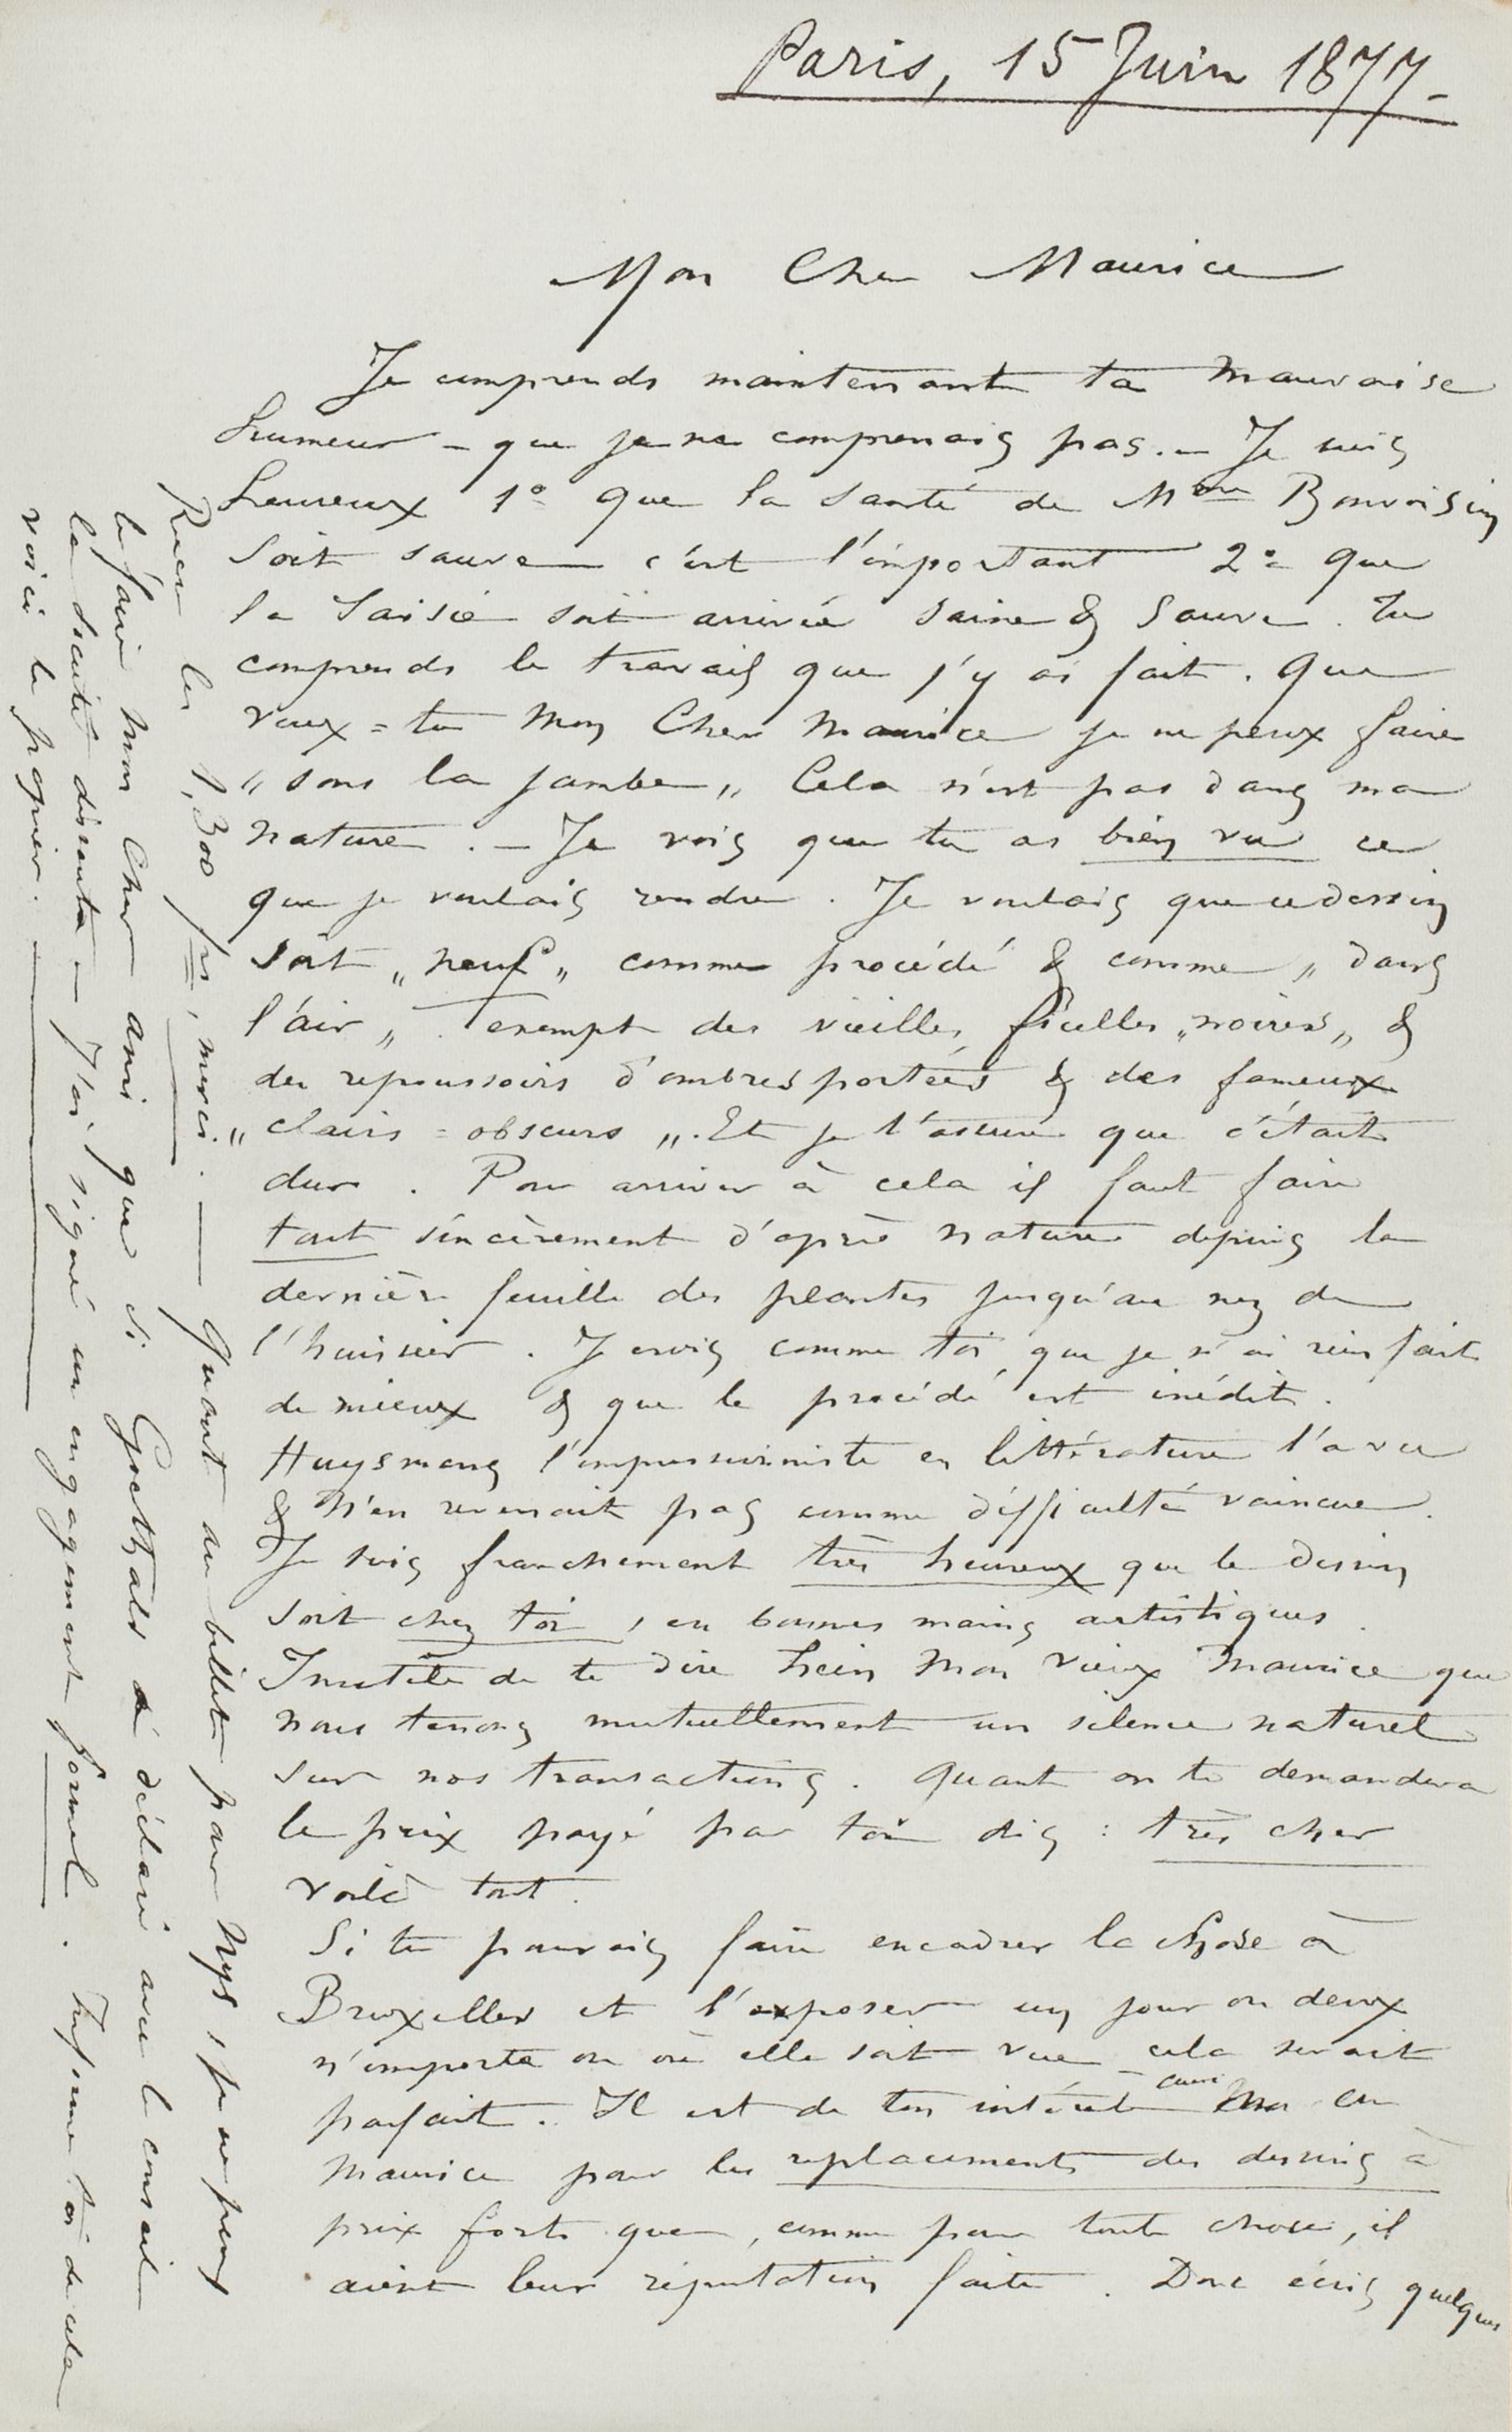 Paris, 15 Juin 1877.
Mon Cher Maurice
Je comprends maintenant ta mauvaise
humeur – que je ne comprenais pas. – Je suis
heureux 1° que la santé de Mme Bonvoisin
soit sauve c'est l'important 2° que
la Saisie soit arrivée saine & sauve. Tu
comprends le travail que j'y ai fait. Que
veux-tu mon Cher Maurice je ne peux faire
„ sous la jambe „ Cela n'est pas dans ma
nature. – Je vois que tu as bien vu ce
que je voulais rendre. Je voulais que ce dessin
soit „ neuf „ comme procédé & comme „ dans
l'air „ exempt des vieilles ficelles „noires„ &
des repoussoirs d'ombres portées & des fameux
„ clairs = obscurs „. Et je t'assure que c'était
dur. Pour arriver à cela il faut faire
tout sincèrement d'après nature depuis la
dernière feuille des plantes jusqu'au nez de
l'huissier. Je crois comme toi que je n'ai rien fait
de mieux & que le procédé est inédit.
Huysmans l'impressionniste en littérature l'a vu
& n'en revenait pas comme difficulté vaincue.
Je suis franchement très heureux que le dessin
soit chez toi, en bonnes mains artistiques.
Inutile de te dire hein mon vieux Maurice que
nous tenons mutuellement un silence naturel
sur nos transactions. Quant on te demandera
le prix payé par toi dis : très cher
voilà tout.
Si tu pouvais faire encadrer la chose à
Bruxelles et l'exposer un jour ou deux
n'importe où elle soit vue cela serait
parfait. Il est de ton intérêt aussi
Maurice pour les replacements des dessins à
prix forts que, comme pour toute chose, il
aient leur réputation faite. Donc écris quelques
Reçu les 1,300 frs, merci. — Quant au billet pour Nys, je ne peux
le faire mon cher ami que si Goettals a déclaré avec le conseil
la société dissoute – J'ai signé un engagement formel. Informe toi de cela
voici le papier.